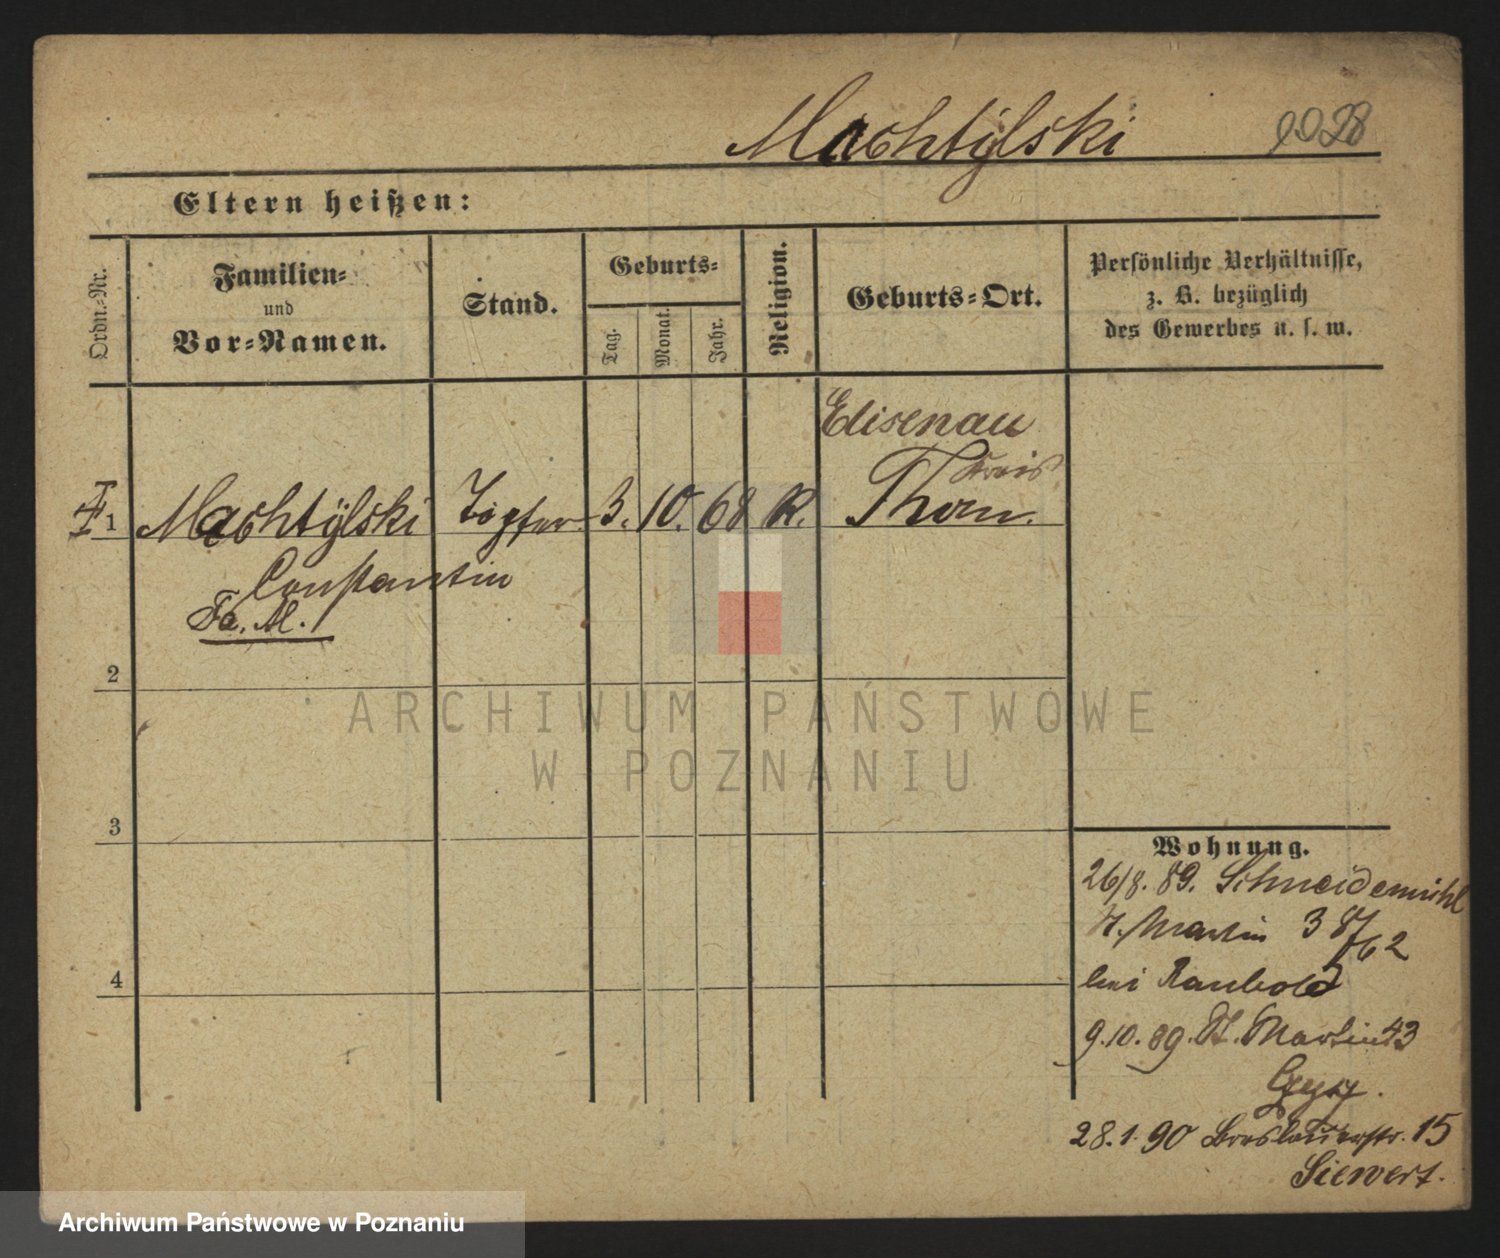 Machtÿlski
Eltern heißen:
Ordn.-Nr.
Familien-
und
Vor-Namen.
Stand.
Geburts-
Tag.
Monat.
Jahr.
Religion.
Geburts-Ort.
Persönliche Verhältnisse,
z. B. bezüglich
des Gewerbes u. s. w.
Elisenau
Kreis
1 Machtÿlski Töpfer 3. 10. 68 K. Thorn.
Constantin
2
3
4
Wohnung.
26/8. 89. Schneidemühl
St. Martin 3
bei Raubold
9.10.89. St. Martin 43
28.1.90 Breslauerstr. 15
Siewert.
ARCHIWUM PAŃSTWOWE
W POZNANIU
Archiwum Państwowe w Poznaniu